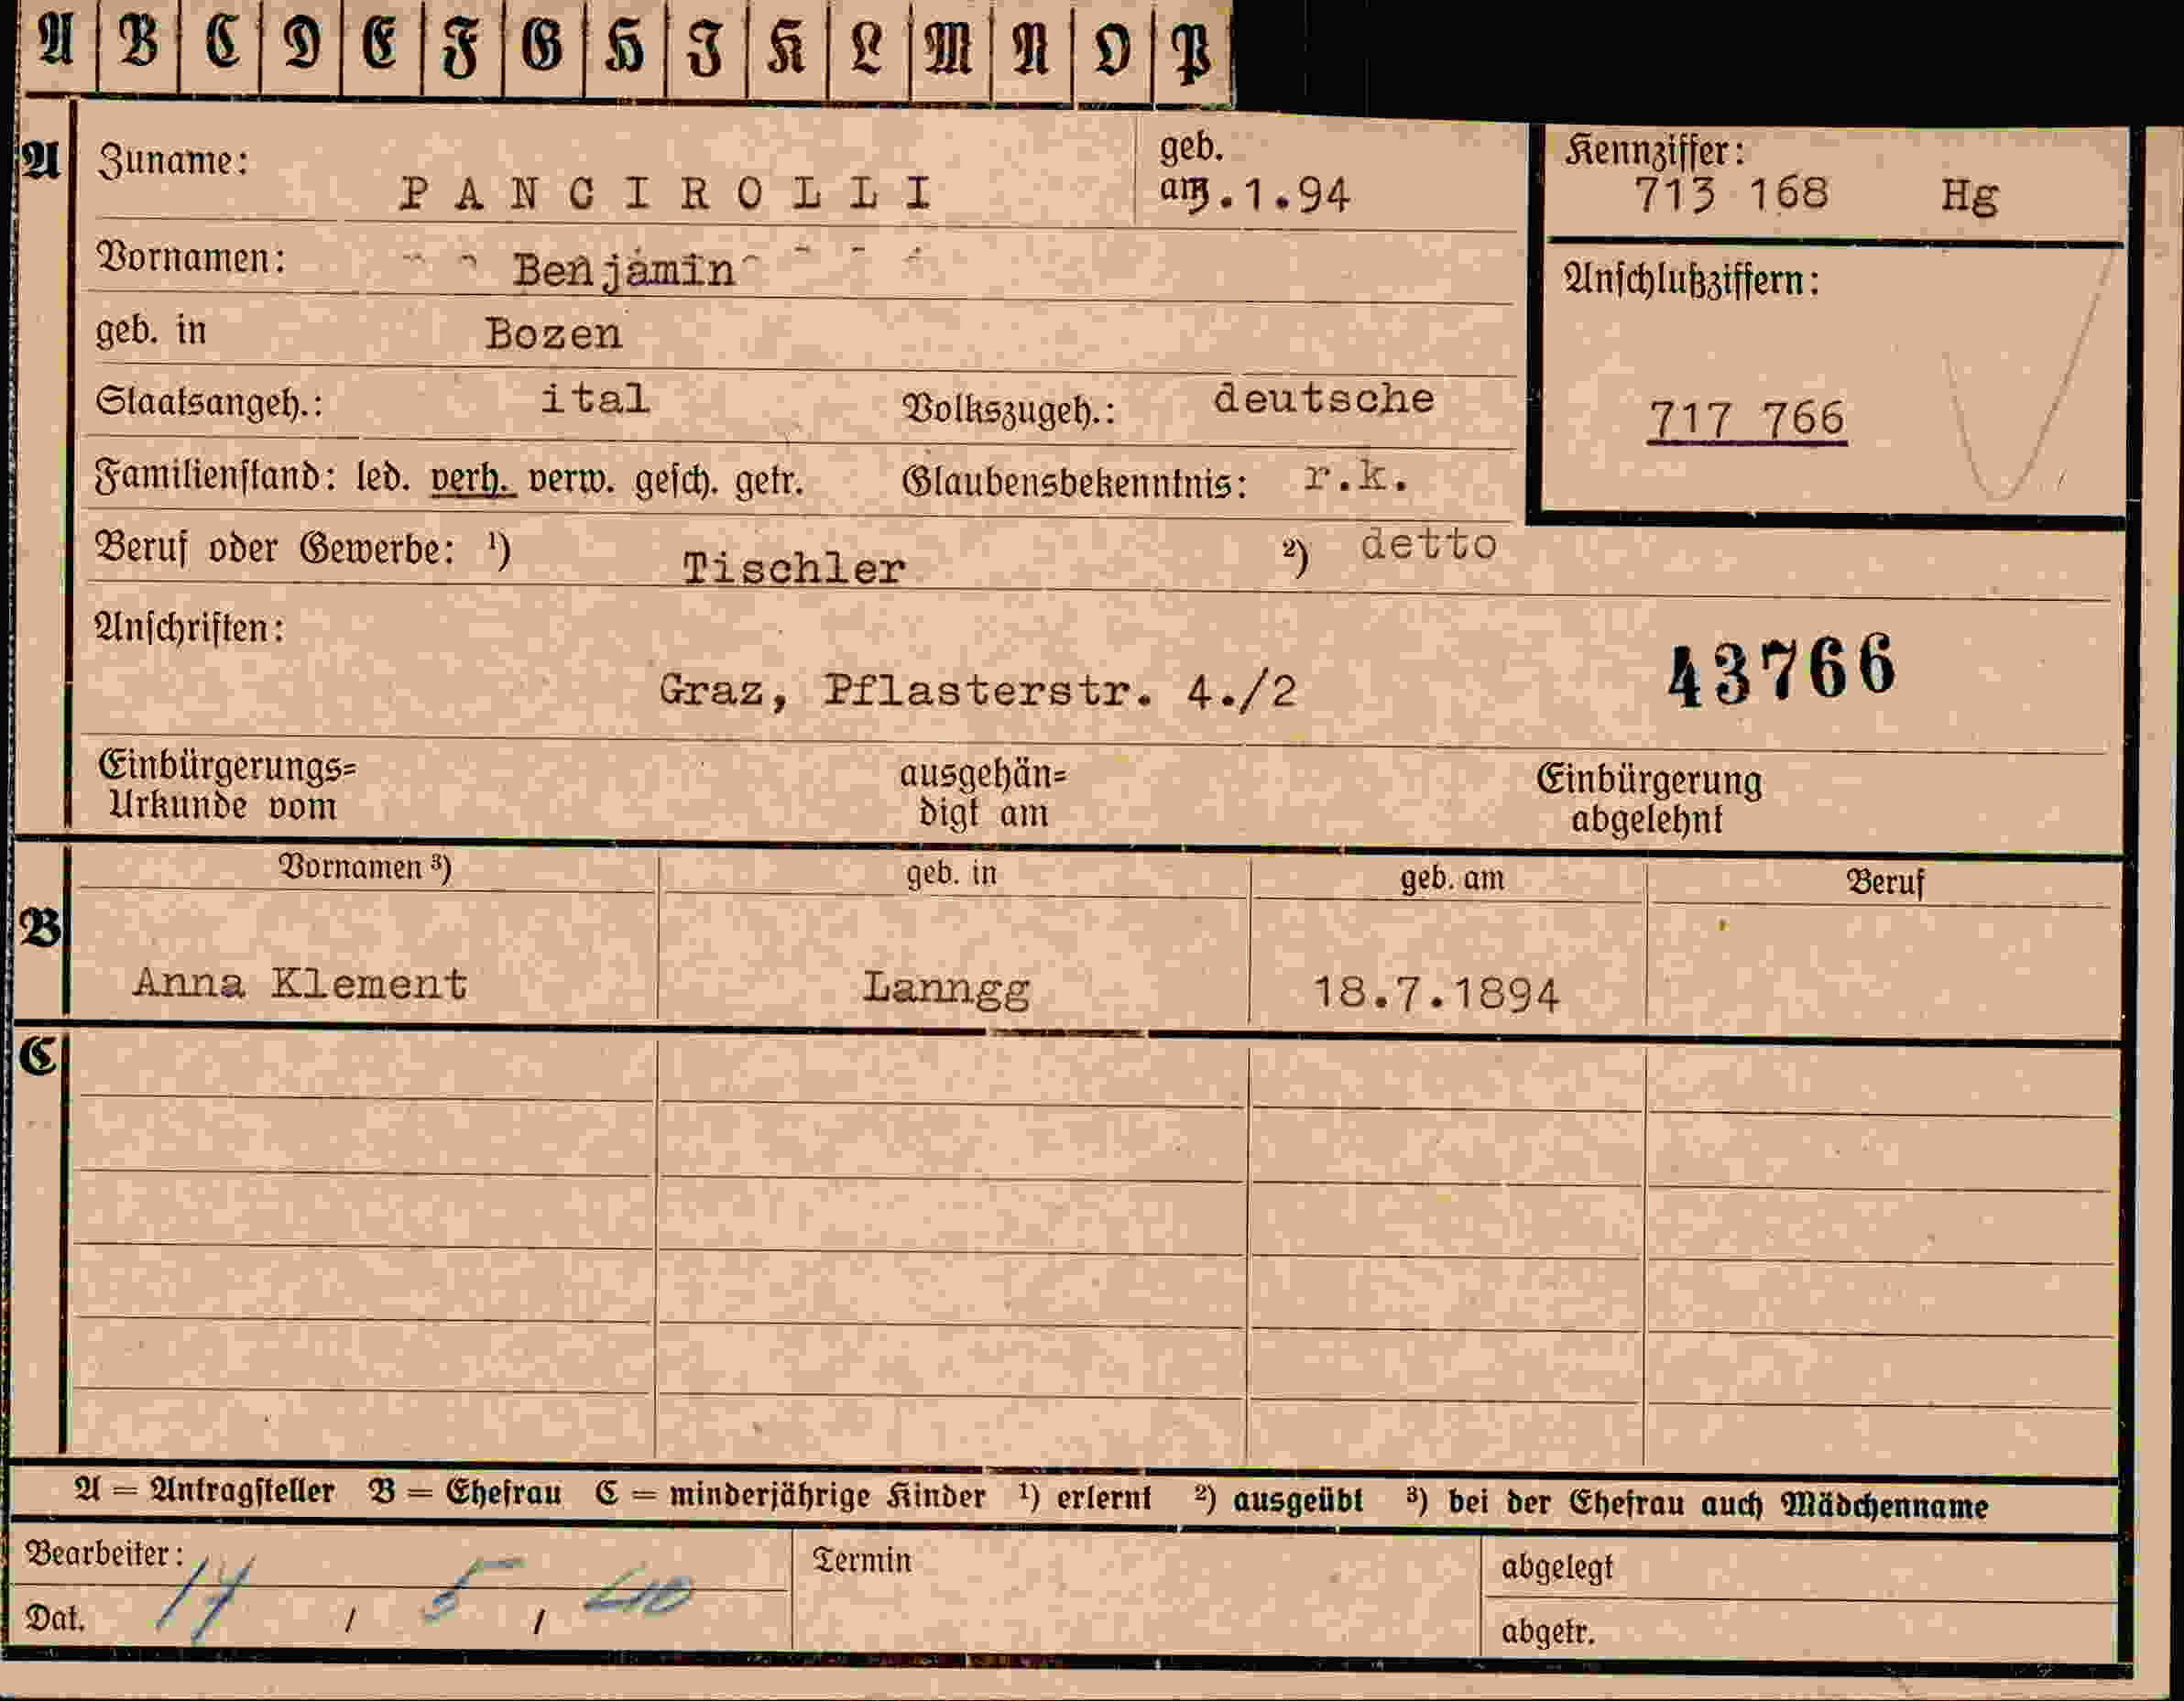 A B C D E F G H I K L M N O P
A Zuname: PANCIROLLI geb. am 3.1.94 Kennziffer: 713 168 Hg
Vornamen: Benjamin Anschlußziffern:
geb. in Bozen
Staatsangeh.: ital Volkszugeh.: deutsche 717 766
Familienstand: led. verh. verw. gesch. getr. Glaubensbekenntnis: r.k.
Beruf oder Gewerbe: ¹) Tischler ²) detto
Anschriften:
Graz, Pflasterstr. 4./2 43766
Einbürgerungs= ausgehän= Einbürgerung
Urkunde vom digt am abgelehnt
Vornamen ³) geb. in geb. am Beruf
B
Anna Klement Lanngg 18.7.1894
C
A = Antragsteller B = Ehefrau C = minderjährige Kinder ¹) erlernt ²) ausgeübt ³) bei der Ehefrau auch Mädchenname
Bearbeiter: Termin abgelegt
Dat. 14 / 5 / 40 abgetr.